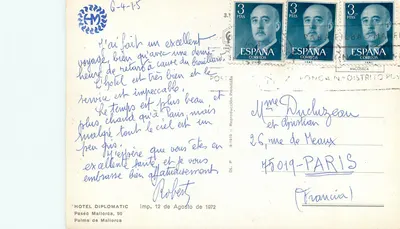 HM
6-4-75
J'ai fait un excellent
voyage bien qu'avec une demi
heure de retard à cause du brouillard
L'hôtel est très bien et le
service est impeccable.
Le temps est plus beau et
plus chaud qu'à Paris, mais
malgré tout le ciel est un
peu gris.
J'espère que vous êtes en
excellente santé et je vous
embrasse bien affectueusement
Robert
HOTEL DIPLOMATIC
Paseo Mallorca,
Palma de Mallorca
Imp. 12 de Agosto de 1972
3
PTAS
ESPAÑA
CORREOS
3
PTAS
ESPAÑA
CORREOS
3
PTAS
ESPAÑA
CORREOS
Mme Ducluzeau
et
26, rue de Meaux
75019-PARIS
(Francia)